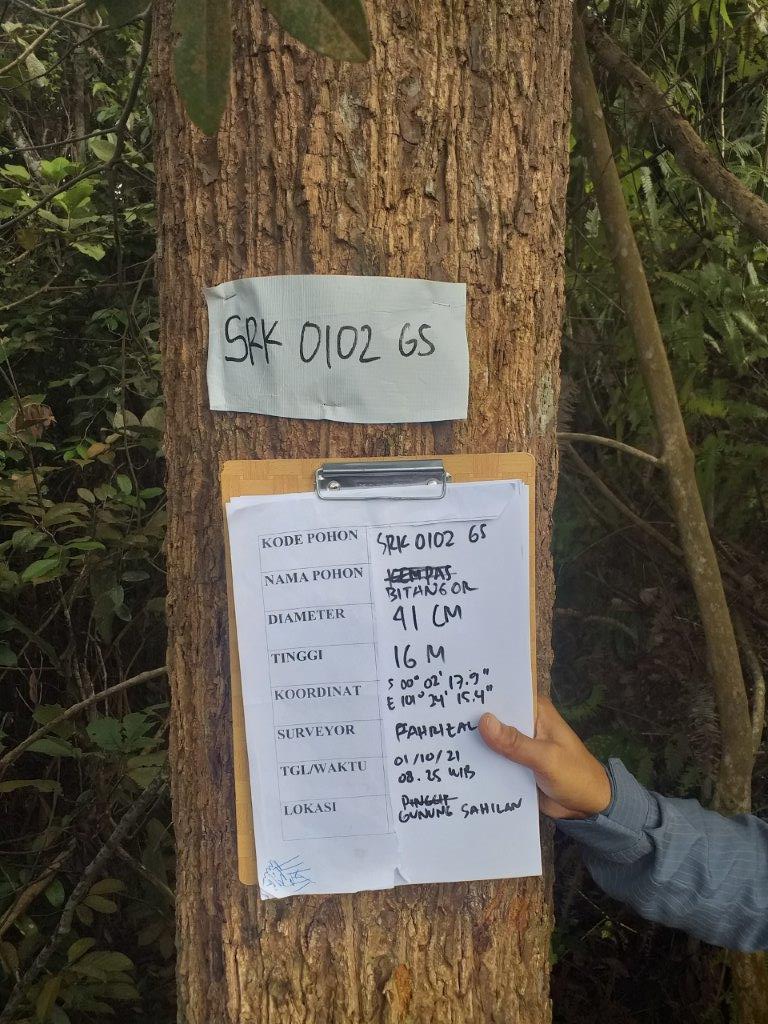 SRK 0102 GS
KODE POHON SRK 0102 GS
NAMA POHON KEMPAS
BITANGOR
DIAMETER 41 CM
TINGGI 16 M
KOORDINAT S 00° 02' 17.9"
E 101° 24' 15.4"
SURVEYOR FAHRIZAL
TGL/WAKTU 01/10/21
08.25 WIB
LOKASI PINGGIR
GUNUNG SAHILAN